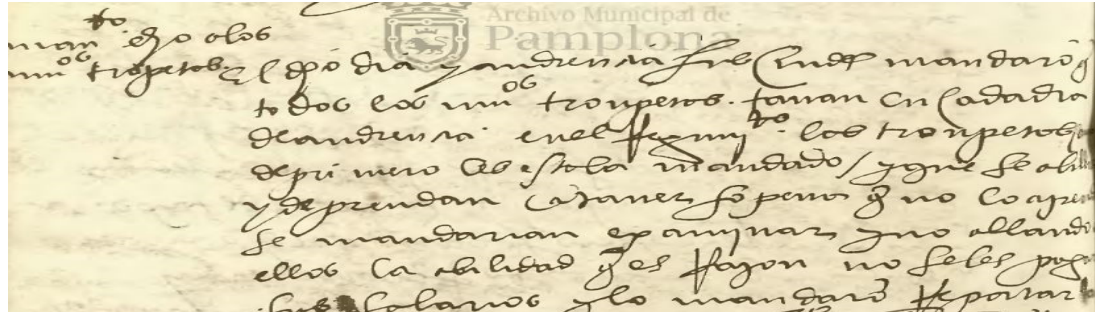 Archivo Municipal de
Pamplona
man^to hecho a los
mi^os trompetos
El dho dia y audiencia sus mandarõ q
todos los mi^os trompetos. tañan en cada dia
de audiencia en el Regimi^to. los trompetos
de primero les estaba mandado / y que se
y deprendan a tañer so pena q no
se mandarian examinar y no allando
ellos la abilidad q es Razon no seles
sus salarios y lo mandarõ Reportar